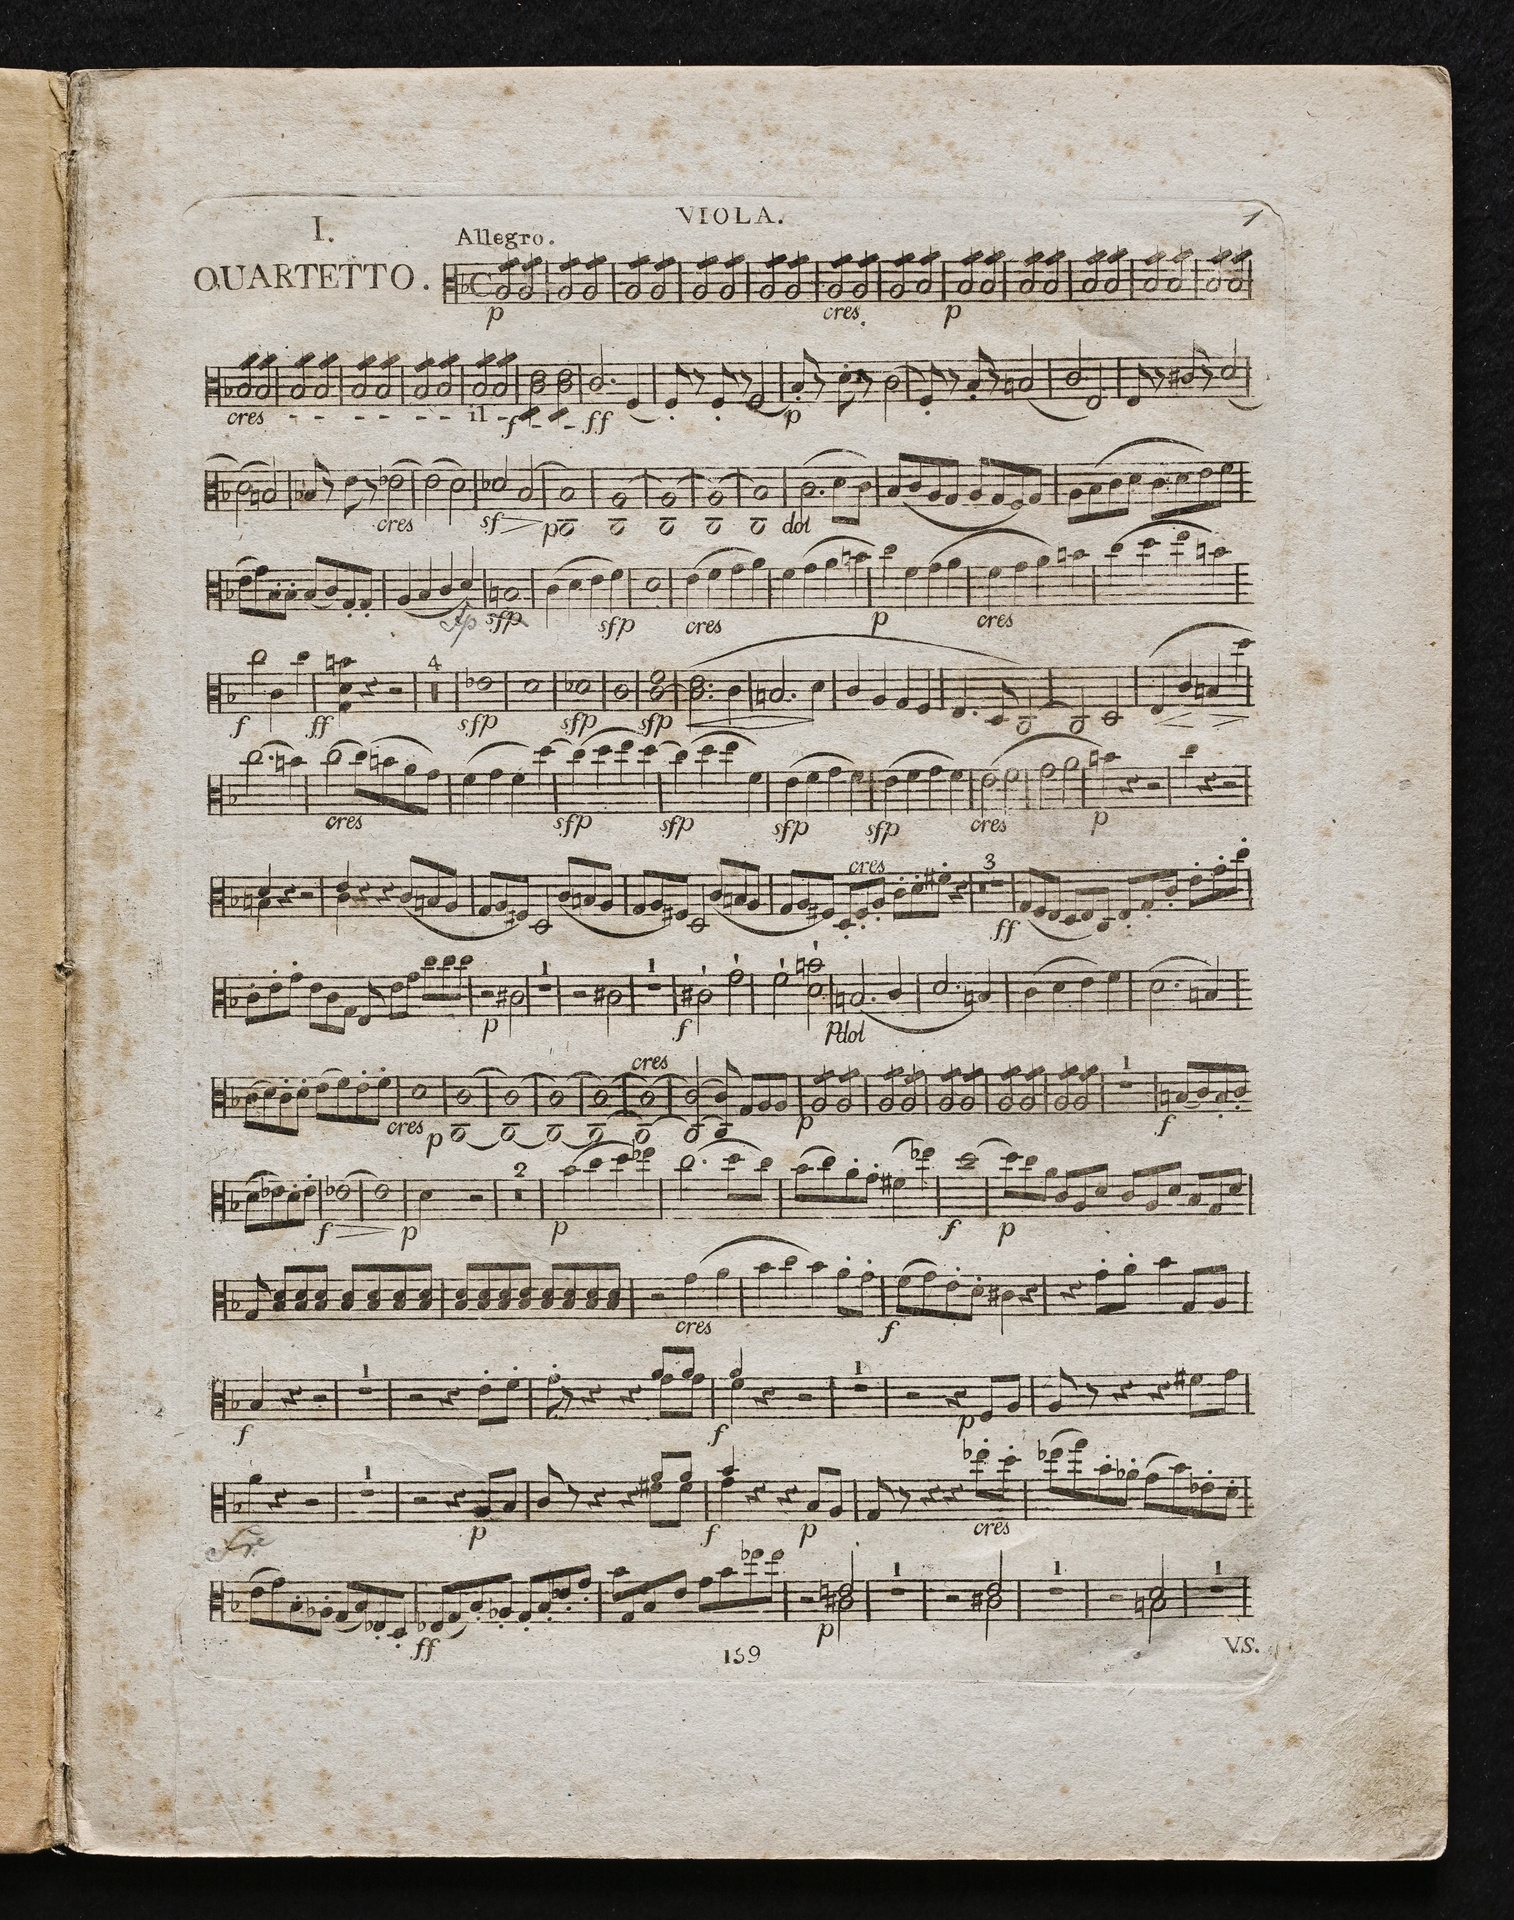 VIOLA.
1
I.
Allegro.
QUARTETTO.
p cres. p
cres il f ff p
cres sf p dol
sfp sfp cres p cres
4
f ff sfp sfp sfp
cres sfp sfp sfp sfp cres p
cres 3
ff
1 1
p f pdol
cres 1
cres p p f
2
f p p f p
cres f
1 1
f f p
1
p f p cres
1 1 1
ff p
159
V.S.